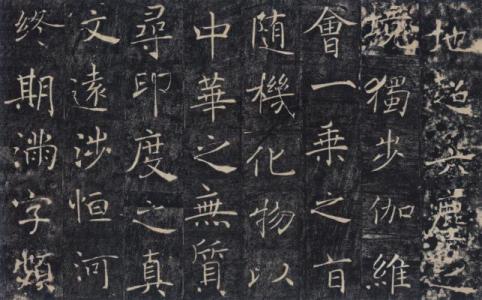 地超六塵之
境獨步伽維
會一乘之旨
隨機化物以
中華之無質
尋印度之真
文遠涉恒河
終期滿字頻